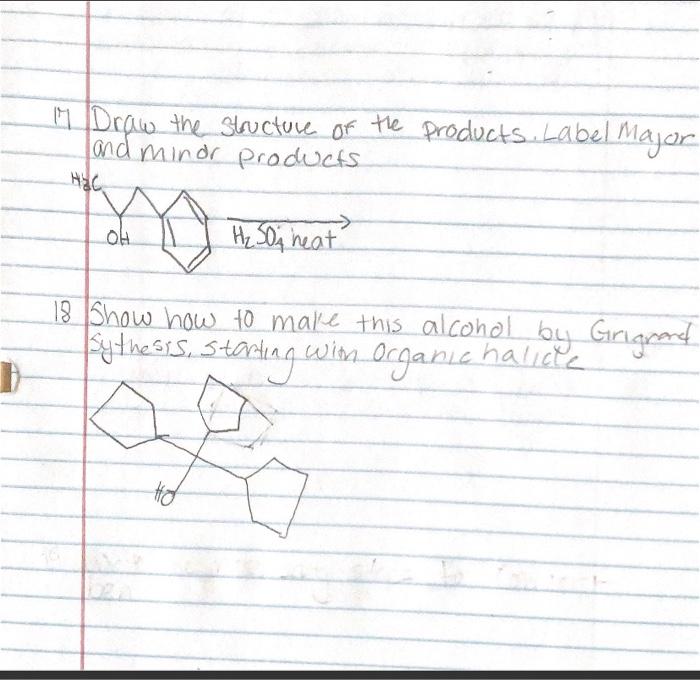 17 Draw the structure of the products. Label Major
and minor products
H3C
OH
H2SO4 heat
18 Show how to make this alcohol by Grignard
Sythesis, starting with Organic halide
HO